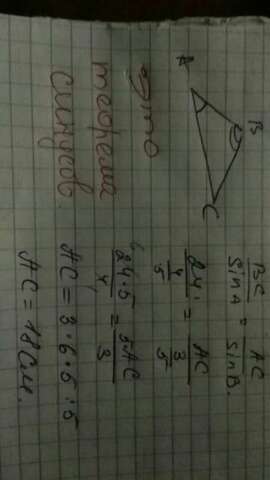 B
A
C
это
теорема
синусов
BC/SinA = AC/SinB.
24 : 4/5 = AC : 3/5
24·5/4 = 5·AC/3
AC = 3·6·5:5
AC = 18 см.